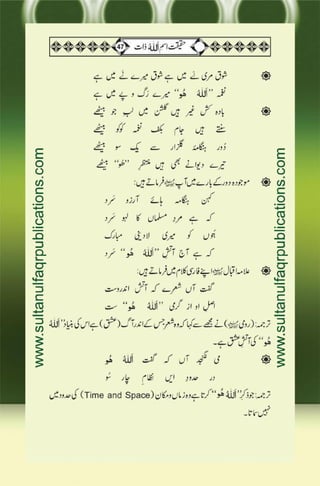 حقیقت اسم اَللّٰہُ ذات 47
شوق مری نے میں ہے شوق میرے نے میں ہے
نغمۂ ’’اَللّٰہُ ھُوْ‘‘ میرے رگ و پے میں ہے
بادہ کش غیر ہیں گلشن میں لبِ جو بیٹھے
سنتے ہیں جام بکف نغمۂ کوکو بیٹھے
دور ہنگامۂ گلزار سے یک سو بیٹھے
تیرے دیوانے بھی ہیں منتظر ’’ھُوْ‘‘ بیٹھے
موجودہ دور کے بارے میں آپ فرماتے ہیں:
کہ ہے مردِ مسلماں کا لہو سرد
بتوں کو میری لادینی مبارک
کہ ہے آج آتشِ ’’اَللّٰہُ ھُوْ‘‘ سرد
علامہ اقبال اپنے فارسی کلام میں فرماتے ہیں:
گفت آں شعرے کہ آتش اندروست
اصل او از گرمی ’’اَللّٰہُ ھُوْ‘‘ ست
ترجمہ: (رومی) نے مجھے کہا کہ وہ شعر جس کے اندر آگ (عشق) ہے اس کی بنیاد ’’اَللّٰہُ
ھُوْ‘‘ کی آتشِ عشق ہے۔
می گفت آں کہ اَللّٰہُ ھُوْ
در حدود ایں نظامِ چار سُو
ترجمہ: جو ذکر ’’اَللّٰہُ ھُوْ‘‘ کرتا ہے وہ زمان و مکان (Time and Space) کی حدود میں
نہیں سماتا۔
www.sultanulfaqrpublications.com
www.sultanulfaqrpublications.com